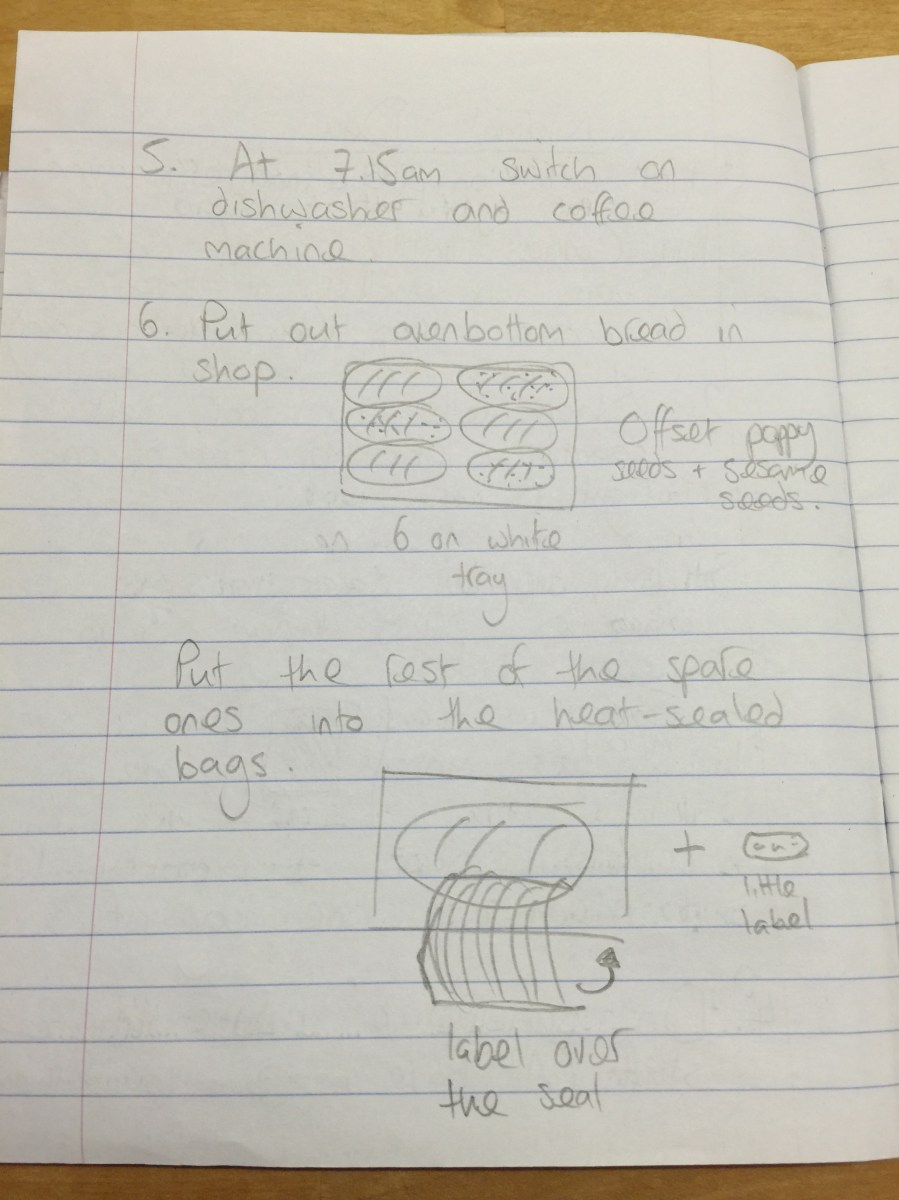 5. At 7.15am switch on
dishwasher and coffee
machine.
6. Put out ovenbottom bread in
shop.
Offset poppy
seeds + sesame
seeds.
6 on white
tray
Put the rest of the spare
ones into the heat-sealed
bags.
+
little
label
label over
the seal